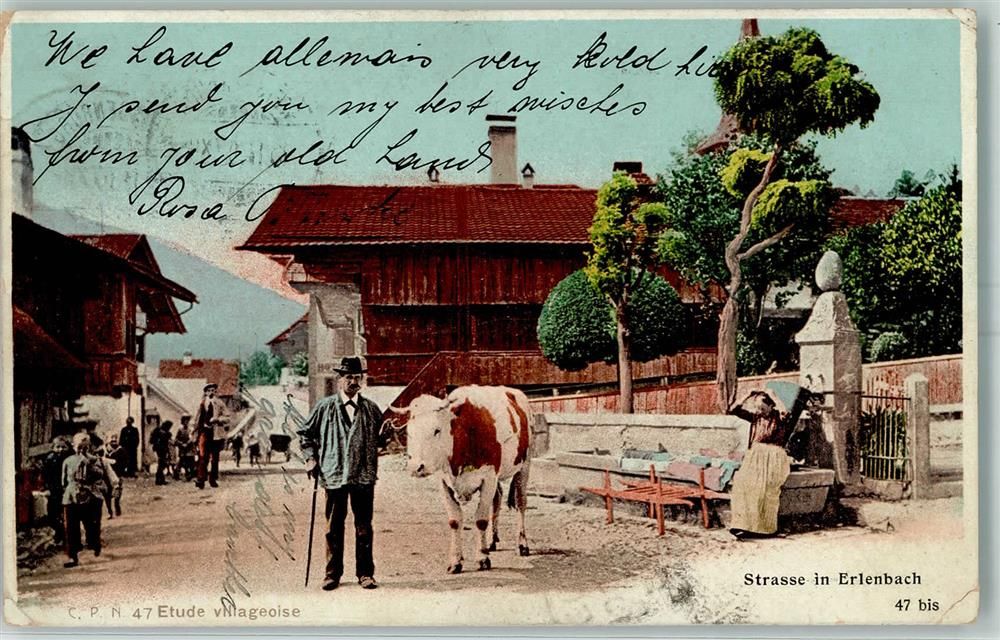 We have allemais very kold
I send you my best wisches
from your old Land
Rosa
Strasse in Erlenbach
47 bis
C. P. N. 47 Etude villageoise